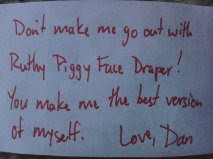 Don't make me go out with
Ruthy Piggy Face Draper!
You make me the best version
of myself. Love, Dan